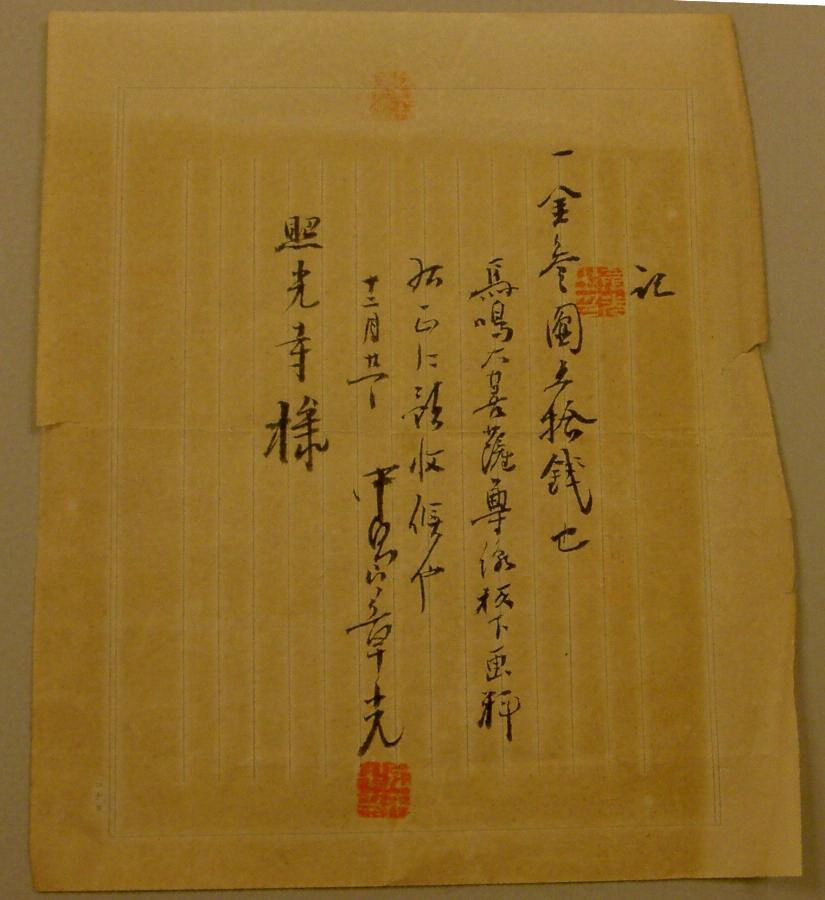 記
一金参圓五拾銭也
馬鳴大菩薩尊像板下画料
右正に領収候也
十二月廿
章光
照光寺様